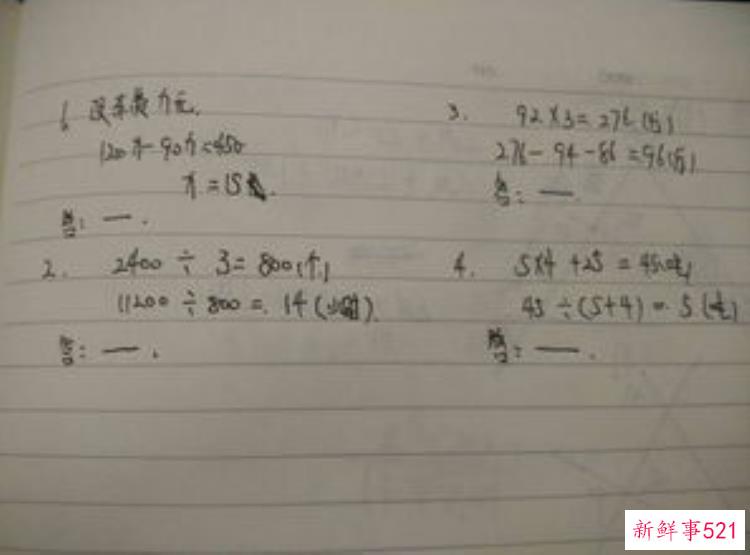 1. 设车费x元.
120x-90x=450
x=15
答: 一.
2. 2400÷3=800(个)
11200÷800=14(小时)
答: 一.
3. 92×3=276(分)
276-94-86=96(分)
答: 一.
4. 5×4+25=45(吨)
45÷(5+4)=5(吨)
答: 一.
新鲜事521